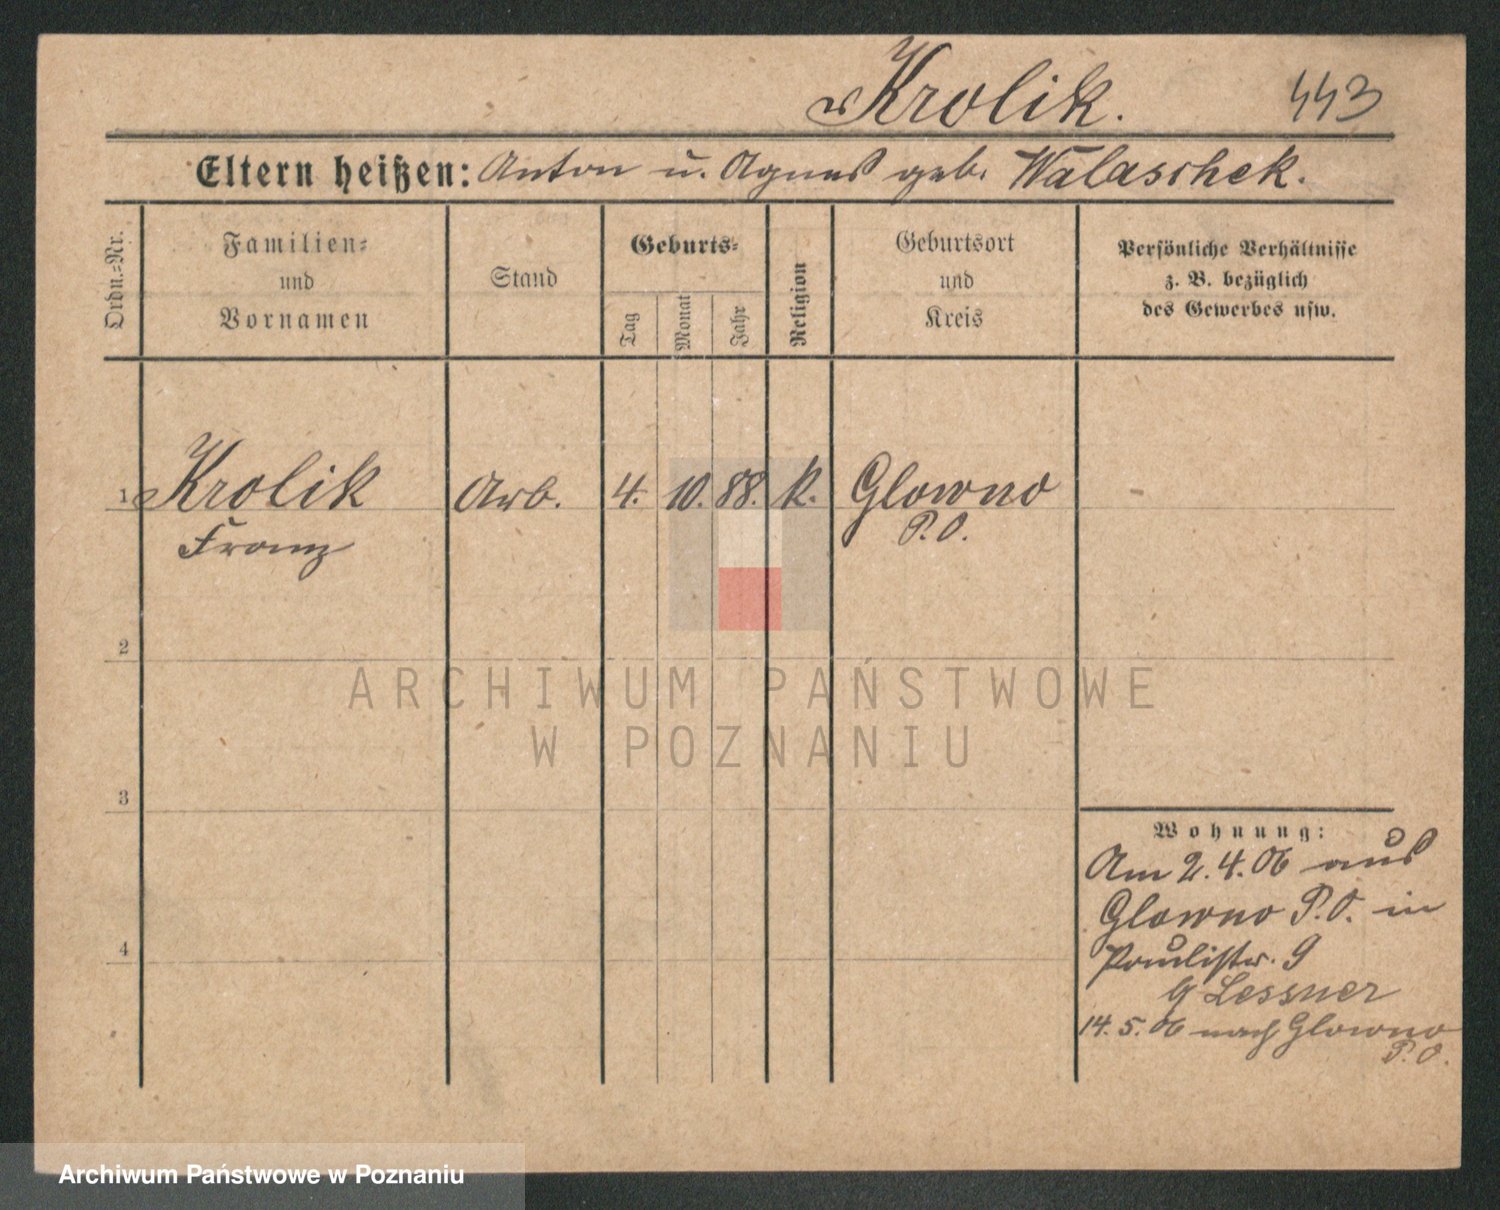 Krolik. 443
Eltern heißen: Anton u. Agnes geb. Walaschek.
Ordn.-Nr.
Familien-
und
Vornamen
Stand
Geburts-
Tag
Monat
Jahr
Religion
Geburtsort
und
Kreis
Persönliche Verhältnisse
z. B. bezüglich
des Gewerbes usw.
1 Krolik Arb. 4. 10. 88. k. Glowno
Franz P.O.
2
3
4
Wohnung:
Am 2.4.06 aus
Glowno P.O. in
Paulistr. 9
b/ Lessner
14.5.06 nach Glowno
P.O.
ARCHIWUM PAŃSTWOWE
W POZNANIU
Archiwum Państwowe w Poznaniu